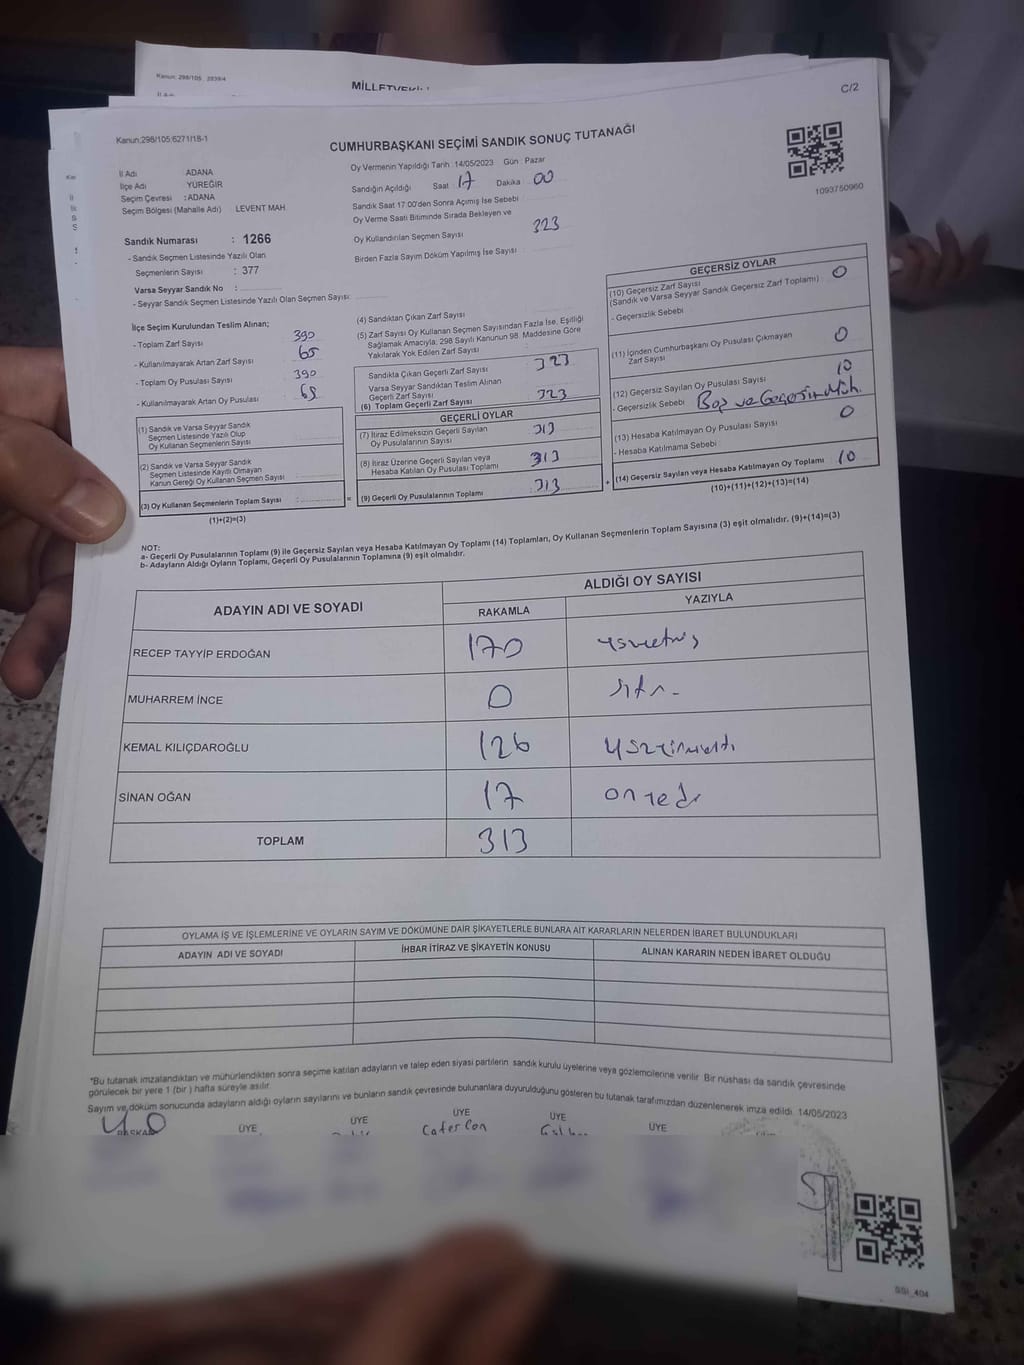 Kanun: 298/105, 2839/4
MİLLETVEKİLİ
C/2
Kanun:298/105:6271/18-1
CUMHURBAŞKANI SEÇİMİ SANDIK SONUÇ TUTANAĞI
1093750960
İl Adı ADANA
İlçe Adı YÜREĞİR
Seçim Çevresi : ADANA
Seçim Bölgesi (Mahalle Adı) LEVENT MAH
Oy Vermenin Yapıldığı Tarih 14/05/2023 Gün : Pazar
Sandığın Açıldığı Saat 17 Dakika 00
Sandık Saat 17 00'den Sonra Açımış İse Sebebi
Oy Verme Saati Bitiminde Sırada Bekleyen ve
Oy Kullandırılan Seçmen Sayısı 323
Birden Fazla Sayım Döküm Yapılmış İse Sayısı :
Sandık Numarası : 1266
- Sandık Seçmen Listesinde Yazılı Olan
Seçmenlerin Sayısı : 377
Varsa Seyyar Sandık No :
- Seyyar Sandık Seçmen Listesinde Yazılı Olan Seçmen Sayısı:
İlçe Seçim Kurulundan Teslim Alınan;
- Toplam Zarf Sayısı 390
- Kullanılmayarak Artan Zarf Sayısı 65
- Toplam Oy Pusulası Sayısı 390
- Kullanılmayarak Artan Oy Pusulası 65
(1) Sandık ve Varsa Seyyar Sandık
Seçmen Listesinde Yazılı Olup
Oy Kullanan Seçmenlerin Sayısı
(2) Sandık ve Varsa Seyyar Sandık
Seçmen Listesinde Kayıtlı Olmayan
Kanun Gereği Oy Kullanan Seçmen Sayısı
(3) Oy Kullanan Seçmenlerin Toplam Sayısı :
(1)+(2)=(3)
(4) Sandıktan Çıkan Zarf Sayısı
(5) Zarf Sayısı Oy Kullanan Seçmen Sayısından Fazla İse, Eşitliği
Sağlamak Amacıyla, 298 Sayılı Kanunun 98. Maddesine Göre
Yakılarak Yok Edilen Zarf Sayısı :
Sandıkta Çıkan Geçerli Zarf Sayısı 323
Varsa Seyyar Sandıktan Teslim Alınan
Geçerli Zarf Sayısı
(6) Toplam Geçerli Zarf Sayısı 323
GEÇERLİ OYLAR
(7) İtiraz Edilmeksizin Geçerli Sayılan
Oy Pusulalarının Sayısı 313
(8) İtiraz Üzerine Geçerli Sayılan veya
Hesaba Katılan Oy Pusulası Toplamı 313
(9) Geçerli Oy Pusulalarının Toplamı 313
GEÇERSİZ OYLAR
(10) Geçersiz Zarf Sayısı 0
(Sandık ve Varsa Seyyar Sandık Geçersiz Zarf Toplamı)
- Geçersizlik Sebebi
(11) İçinden Cumhurbaşkanı Oy Pusulası Çıkmayan
Zarf Sayısı 0
(12) Geçersiz Sayılan Oy Pusulası Sayısı 10
- Geçersizlik Sebebi Boş ve Geçersiz Müh.
(13) Hesaba Katılmayan Oy Pusulası Sayısı 0
- Hesaba Katılmama Sebebi :
(14) Geçersiz Sayılan veya Hesaba Katılmayan Oy Toplamı 10
(10)+(11)+(12)+(13)=(14)
NOT:
a- Geçerli Oy Pusulalarının Toplamı (9) ile Geçersiz Sayılan veya Hesaba Katılmayan Oy Toplamı (14) Toplamları, Oy Kullanan Seçmenlerin Toplam Sayısına (3) eşit olmalıdır. (9)+(14)=(3)
b- Adayların Aldığı Oyların Toplamı, Geçerli Oy Pusulalarının Toplamına (9) eşit olmalıdır.
ADAYIN ADI VE SOYADI ALDIĞI OY SAYISI
RAKAMLA YAZIYLA
RECEP TAYYİP ERDOĞAN 170 yüzyetmiş
MUHARREM İNCE 0 sıfır
KEMAL KILIÇDAROĞLU 126 yüzyirmialtı
SİNAN OĞAN 17 onyedi
TOPLAM 313
OYLAMA İŞ VE İŞLEMLERİNE VE OYLARIN SAYIM VE DÖKÜMÜNE DAİR ŞİKAYETLERLE BUNLARA AİT KARARLARIN NELERDEN İBARET BULUNDUKLARI
ADAYIN ADI VE SOYADI İHBAR İTİRAZ VE ŞİKAYETİN KONUSU ALINAN KARARIN NEDEN İBARET OLDUĞU
*Bu tutanak imzalandıktan ve mühürlendikten sonra seçime katılan adayların ve talep eden siyasi partilerin sandık kurulu üyelerine veya gözlemcilerine verilir. Bir nüshası da sandık çevresinde
görülecek bir yere 1 (bir ) hafta süreyle asılır.
Sayım ve döküm sonucunda adayların aldığı oyların sayılarını ve bunların sandık çevresinde bulunanlara duyurulduğunu gösteren bu tutanak tarafımızdan düzenlenerek imza edildi. 14/05/2023
BAŞKAN ÜYE ÜYE ÜYE ÜYE ÜYE
Cafer Can
SSI_404